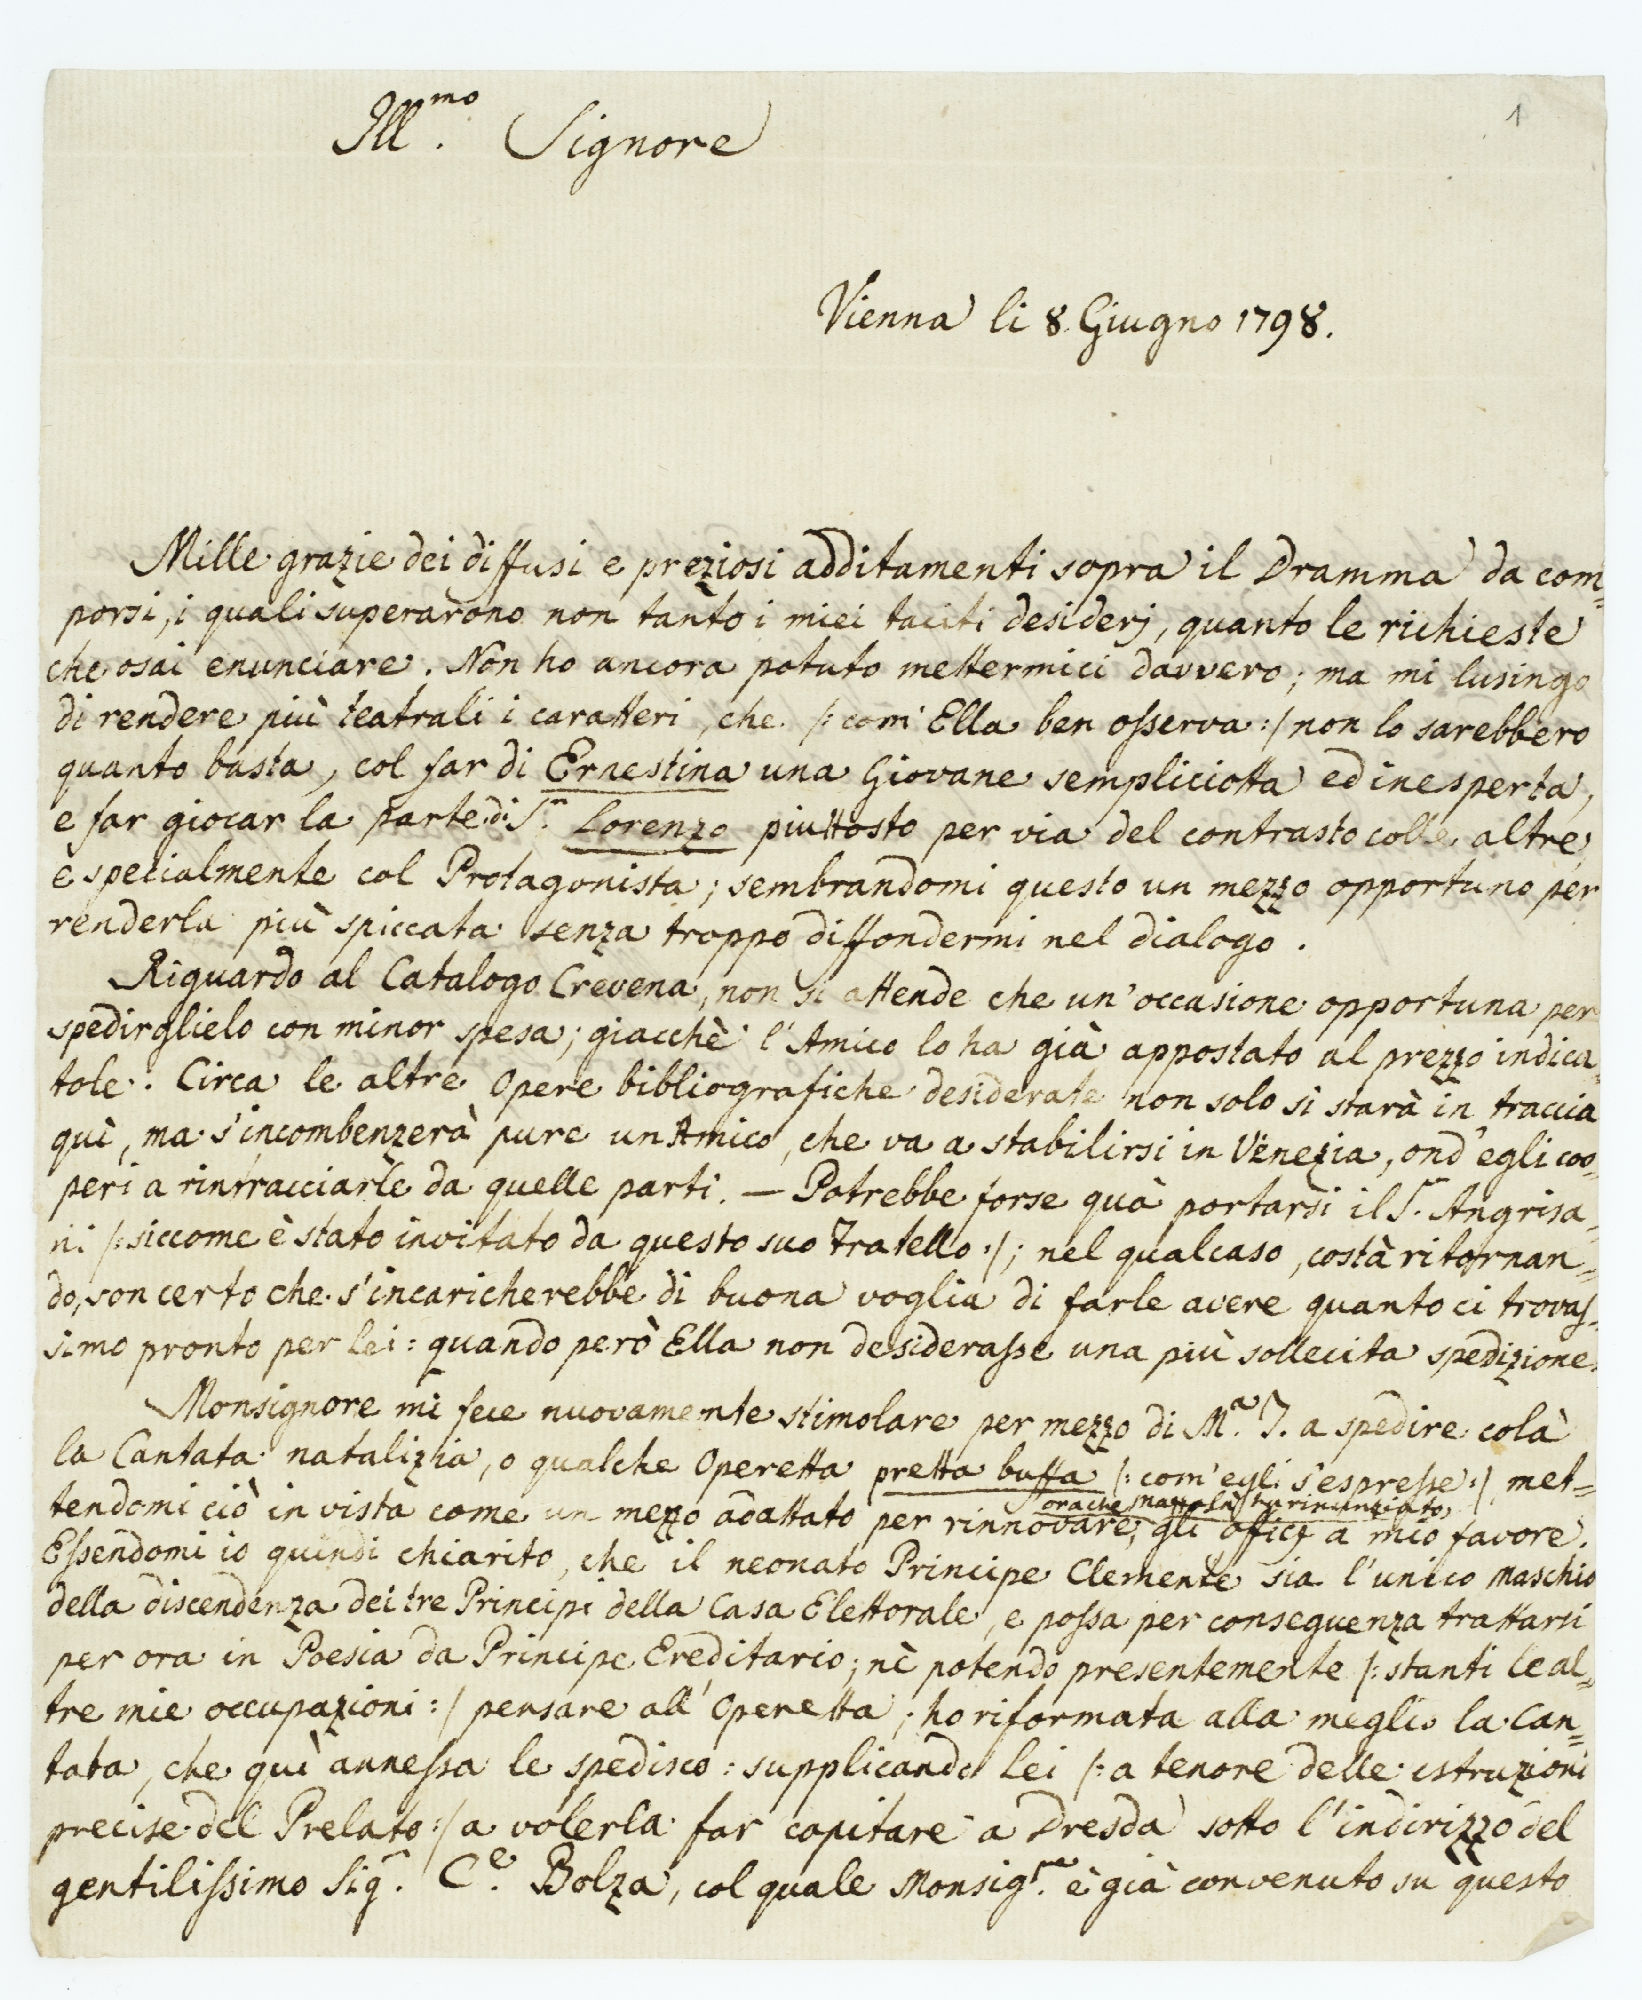 1
Ill.mo Signore
Vienna li 8. Giugno 1798.
Mille grazie dei diffusi e preziosi additamenti sopra il Dramma da com=
porsi, i quali superarono non tanto i miei taciti desiderj, quanto le richieste
che osai enunciare. Non ho ancora potuto mettermici davvero; ma mi lusingo
di rendere più teatrali i caratteri, che /: com' Ella ben osserva :/ non lo sarebbero
quanto basta, col far di Ernestina una Giovane sempliciotta ed inesperta,
e far giocar la parte di S.r Lorenzo piuttosto per via del contrasto colle altre,
e specialmente col Protagonista; sembrandomi questo un mezzo opportuno per
renderla più spiccata senza troppo diffondermi nel dialogo.
Riguardo al Catalogo Crevena, non si attende che un' occasione opportuna per
spedirglielo con minor spesa; giacchè l'Amico lo ha già appostato al prezzo indica=
tole. Circa le altre Opere bibliografiche desiderate non solo si starà in traccia
quì, ma s'incombenzerà pure un Amico, che va a stabilirsi in Venezia, ond' egli coo=
peri a rintracciarle da quelle parti. — Potrebbe forse quà portarsi il S.r Angrisa=
ni /: siccome è stato invitato da questo suo Fratello :/; nel qual caso, costà ritornan=
do, son certo che s'incaricherebbe di buona voglia di farle avere quanto ci trovas=
simo pronto per Lei: quando però Ella non desiderasse una più sollecita spedizione.
Monsignore mi fece nuovamente stimolare per mezzo di M.a T. a spedire colà
la Cantata natalizia, o qualche Operetta pretta buffa /: com' egli s'espresse :/, met=
tendomi ciò in vista come un mezzo adattato per rinnovare, ora che Mazzolà ha rinunziato, gli officj a mio favore.
Essendomi io quindi chiarito, che il neonato Principe Clemente sia l'unico maschio
della discendenza dei tre Principi della Casa Elettorale, e possa per conseguenza trattarsi
per ora in Poesia da Principe Ereditario; nè potendo presentemente /: stanti le al=
tre mie occupazioni :/ pensare all' Operetta; ho riformata alla meglio la Can=
tata, che quì annessa le spedisco: supplicando Lei /: a tenore delle istruzioni
precise del Prelato :/ a volerla far capitare a Dresda sotto l'indirizzo del
gentilissimo Sig.r C.e Bolza, col quale Monsig.re è già convenuto su questo